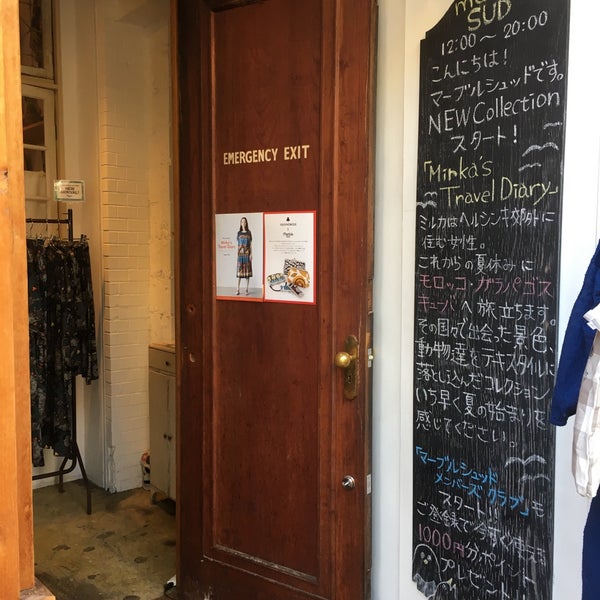 EMERGENCY EXIT
SUD
12:00〜20:00
こんにちは!
マーブルシュッドです。
NEW Collection
スタート!
「Mirka's
Travel Diary」
ミルカはヘルシンキ郊外に
住む女性。
これからの夏休みに
モロッコ・ガラパゴス
キューバへ旅立ちます。
その国々で出会った景色
動物達をテキスタイルに
落とし込んだコレクション
いち早く夏の始まりを
感じてください。
「マーブルシュッド
メンバーズクラブ」も
スタート!!
ご登録で今すぐ使える
1000円分ポイント
プレゼント!